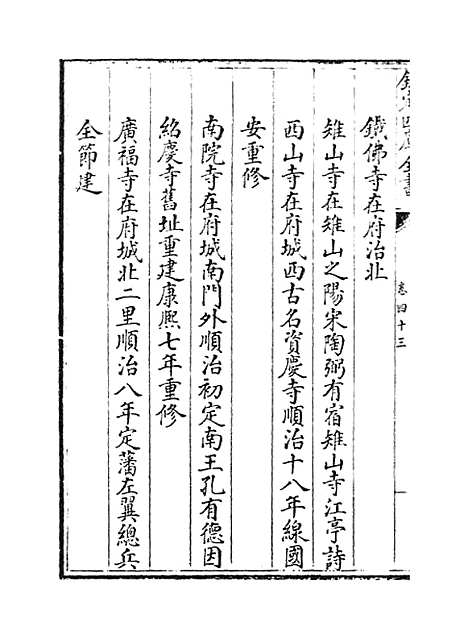 欽定四庫全書
卷四十三
鐵佛寺在府治北
雉山寺在雉山之陽宋陶弼有宿雉山寺江亭詩
西山寺在府城西古名資慶寺順治十八年線國
安重修
南院寺在府城南門外順治初定南王孔有德因
紹慶寺舊址重建康熙七年重修
廣福寺在府城北二里順治八年定藩左翼總兵
全節建